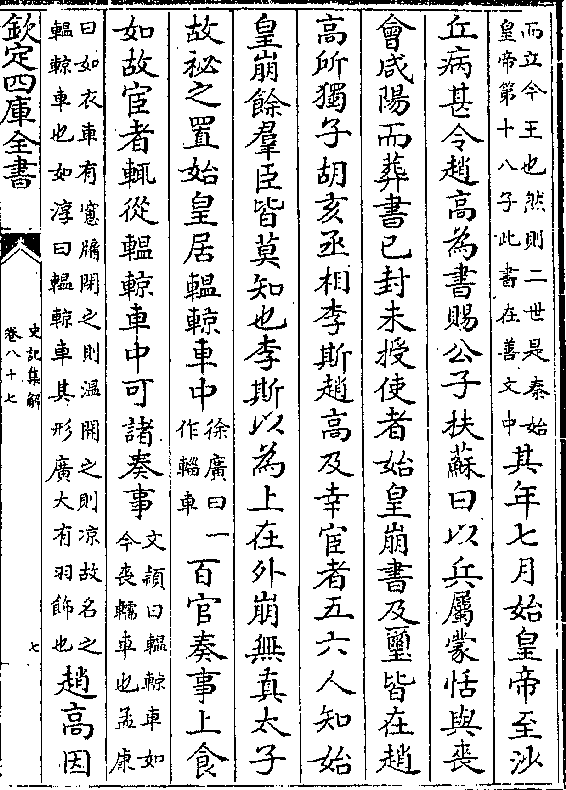 而立今王也然則二世是秦始
皇帝第十八子此書在善文中
其年七月始皇帝至沙
丘病甚令趙高為書賜公子扶蘇曰以兵屬蒙恬與喪
會咸陽而葬書已封未授使者始皇崩書及璽皆在趙
高所獨子胡亥丞相李斯趙高及幸宦者五六人知始
皇崩餘羣臣皆莫知也李斯以為上在外崩無真太子
故祕之置始皇居轀輬車中
徐廣曰一
作輜車
百官奏事上食
如故宦者輒從轀輬車中可諸奏事
文穎曰轀輬車如
今喪轜車也孟康
曰如衣車有窻牖閉之則温開之則凉故名之
轀輬車也如淳曰轀輬車其形廣大有羽飾也
趙高因
欽定四庫全書
史記集解
卷八十七
七